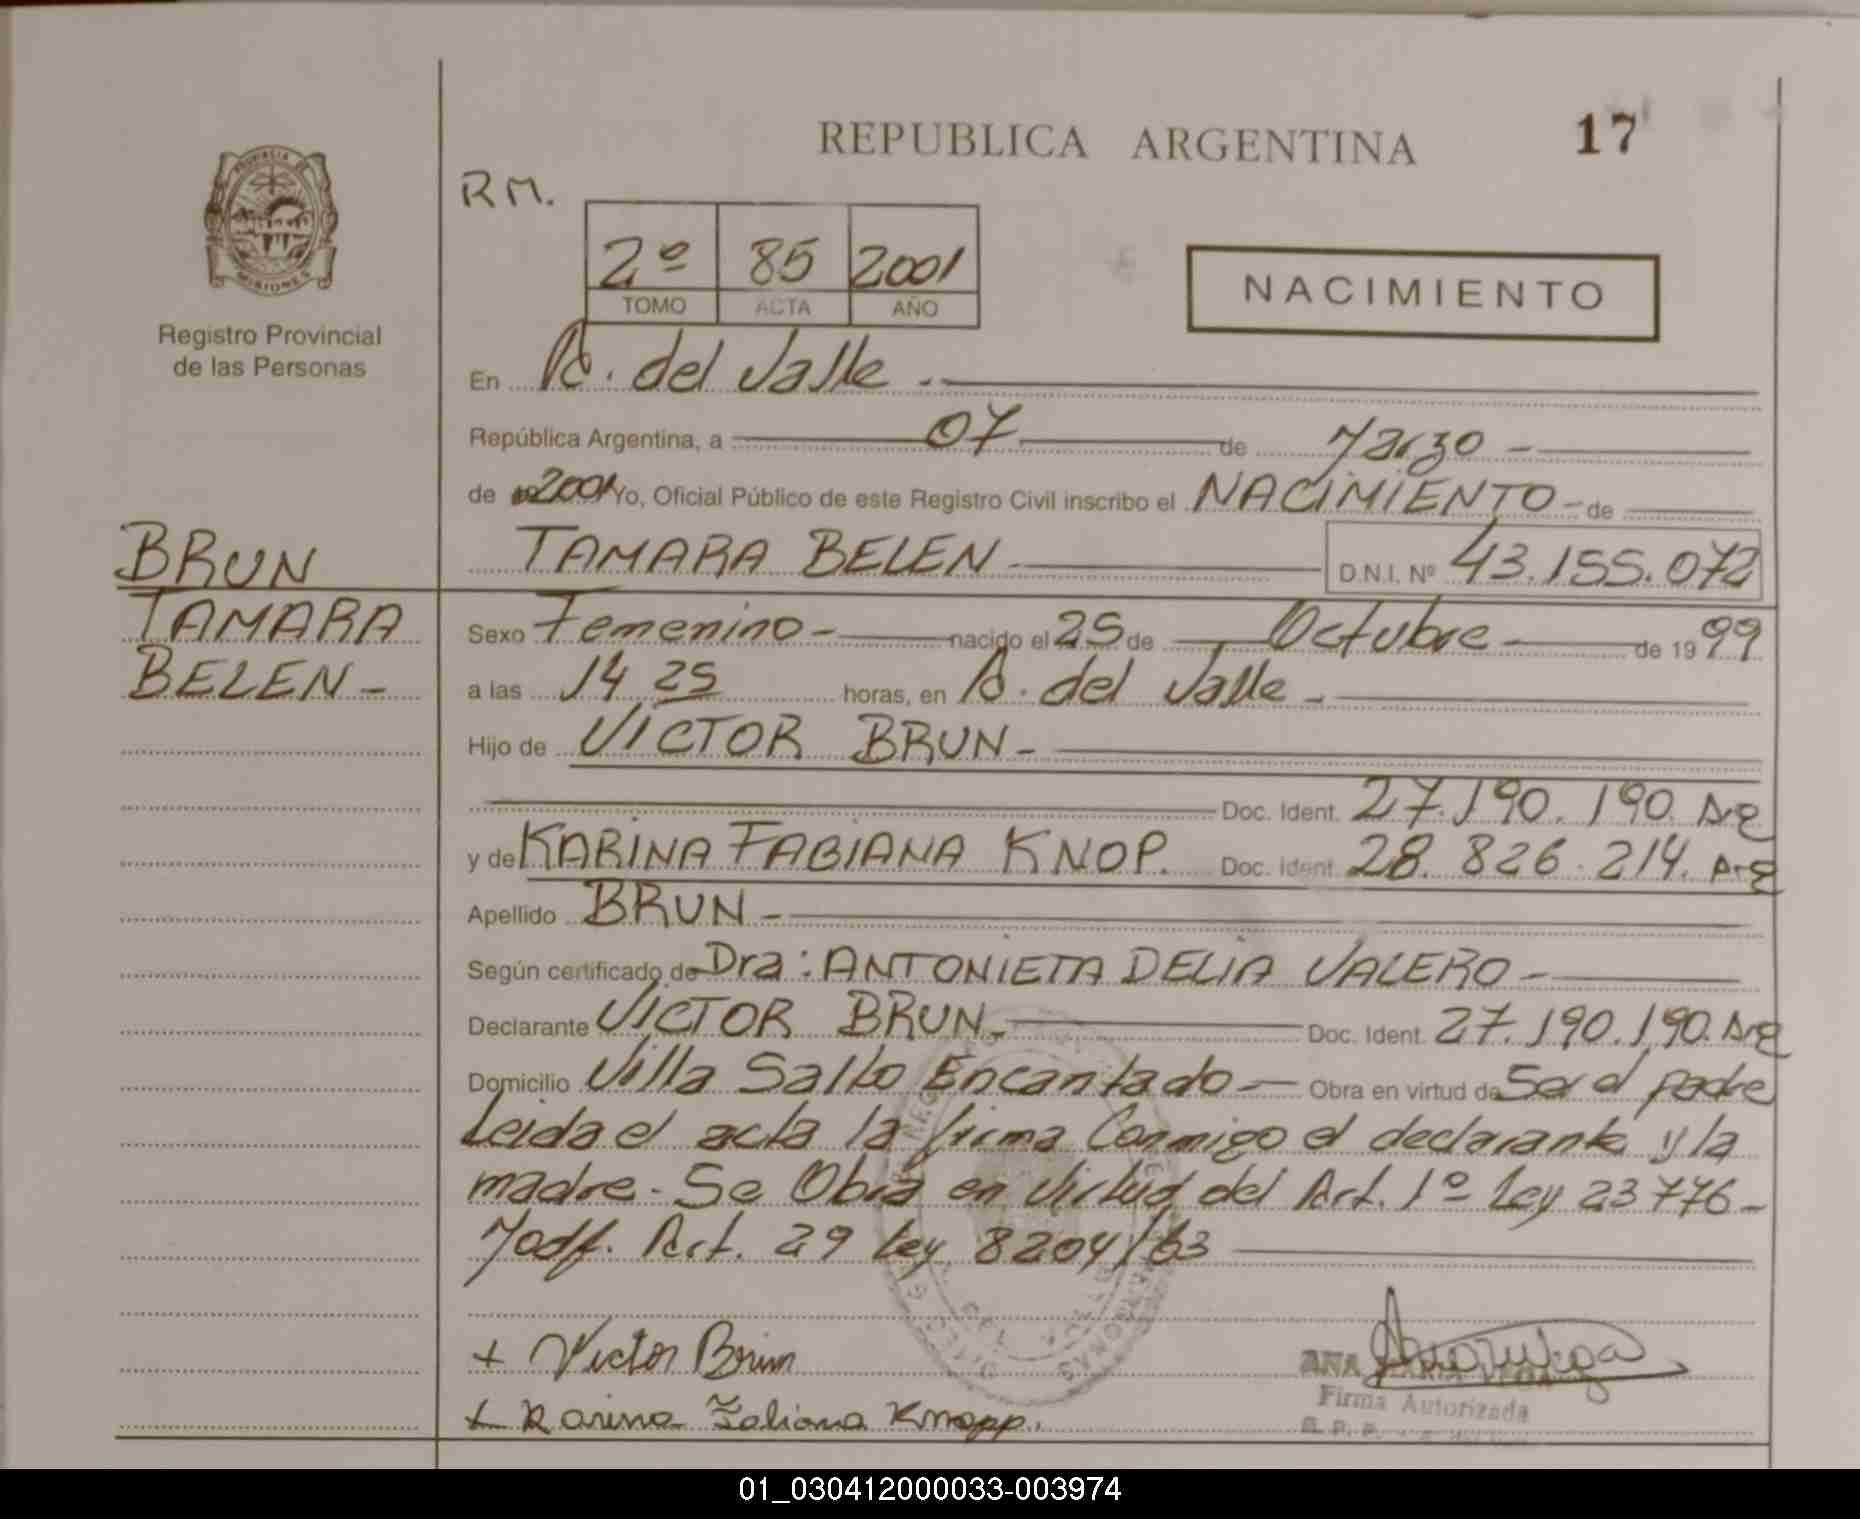 REPUBLICA ARGENTINA
17
PROVINCIA DE MISIONES
Registro Provincial
de las Personas
R M.
2º 85 2001
TOMO ACTA AÑO
NACIMIENTO
En A. del Valle.-
República Argentina, a 07 de Marzo -
de 2001 Yo, Oficial Público de este Registro Civil inscribo el NACIMIENTO - de
TAMARA BELEN D.N.I. Nº 43.155.072
BRUN
TAMARA
BELEN -
Sexo Femenino - nacido el 25 de Octubre - de 1999
a las 14 25 horas, en A. del Valle -
Hijo de VICTOR BRUN -
Doc. Ident. 27.190.190. Arg
y de KARINA FABIANA KNOP. Doc. Ident. 28.826.214. Arg
Apellido BRUN -
Según certificado de Dra: ANTONIETA DELIA VALERO -
Declarante VICTOR BRUN - Doc. Ident. 27.190.190. Arg
Domicilio Villa Salto Encantado - Obra en virtud de Ser el padre
Leida el acta la firma Conmigo el declarante y la
madre - Se Obra en virtud del Art. 1º Ley 23776 -
Modf. Art. 29 Ley 8204/63
+ Victor Brun
+ Karina Fabiana Knopp.
ANA MARIA VEGA
Firma Autorizada
01_030412000033-003974